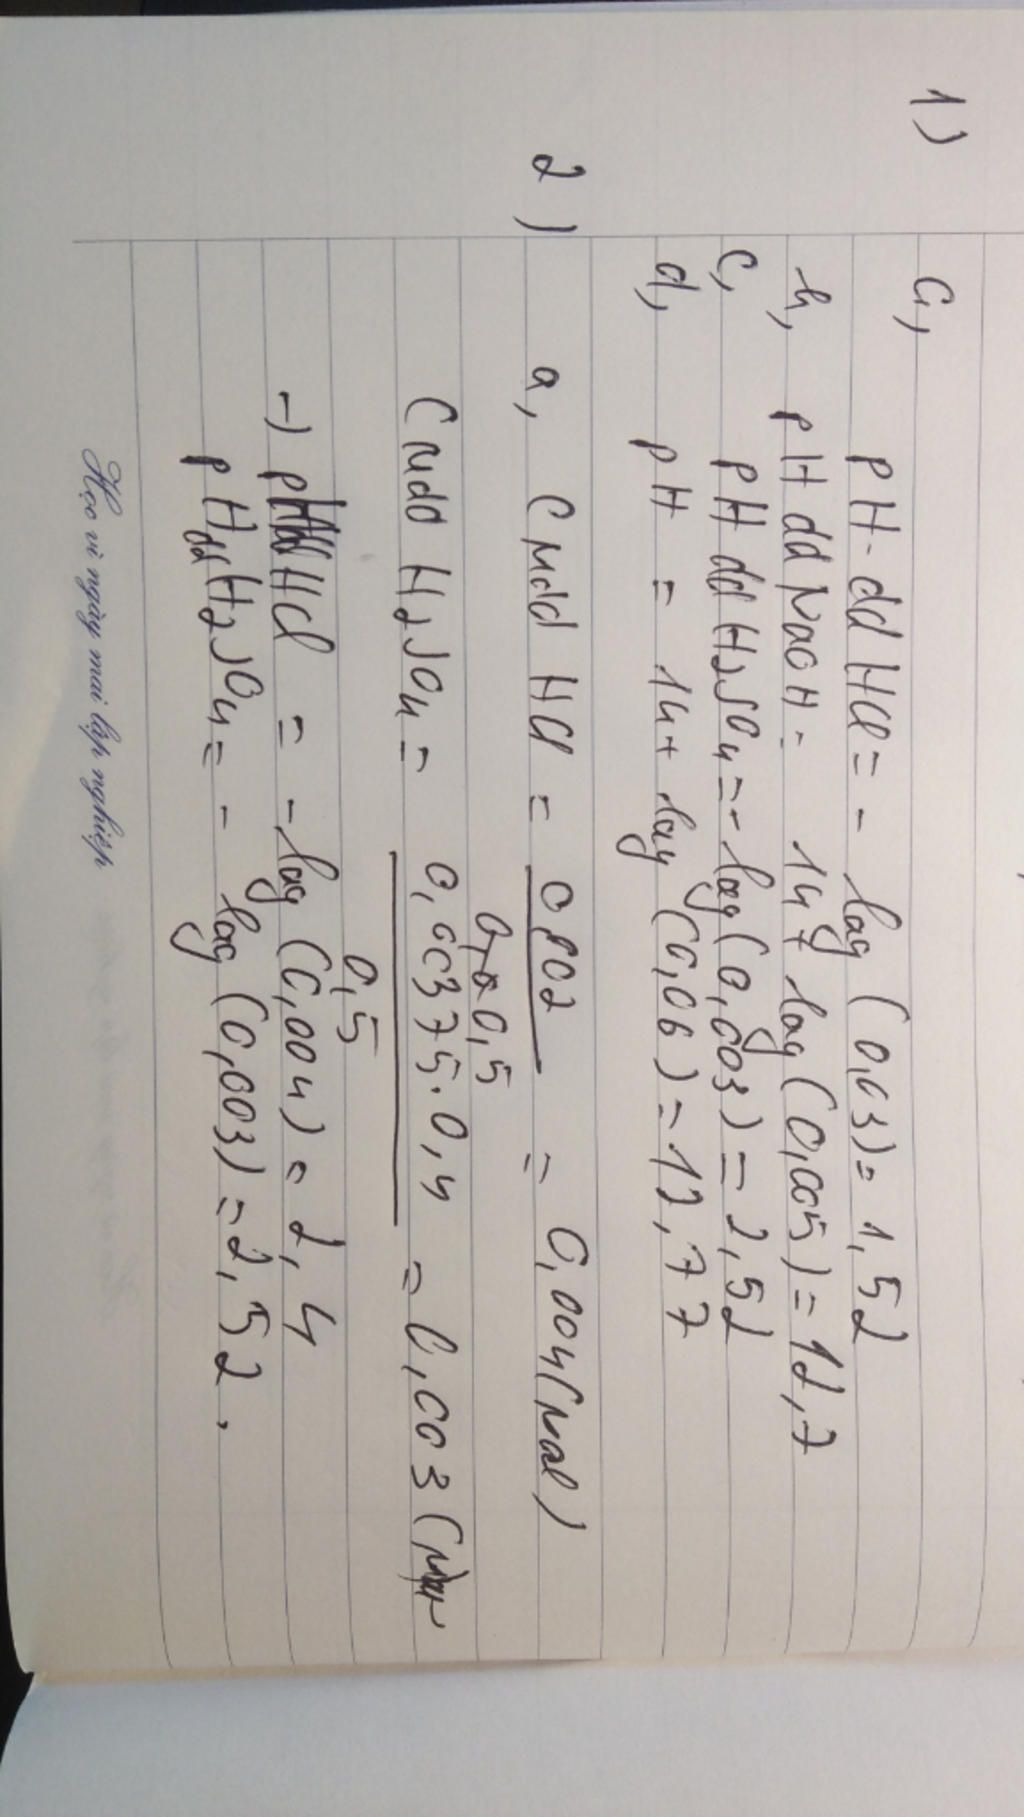 1) a, pH dd HCl = - log (0,03) = 1,52
b, pH dd NaOH = 14 + log (0,005) = 11,7
c, pH dd H2SO4 = - log (0,003) = 2,52
d, pH = 14 + log (0,06) = 12,77
2) a, CMdd HCl = 0,002 / 0,5 = 0,004 (Mol)
CMdd H2SO4 = 0,00375.0,4 / 0,5 = 0,003
-) pH HCl = - log (0,004) = 2,4
pHdd H2SO4 = - log (0,003) = 2,52.
Học vì ngày mai lập nghiệp